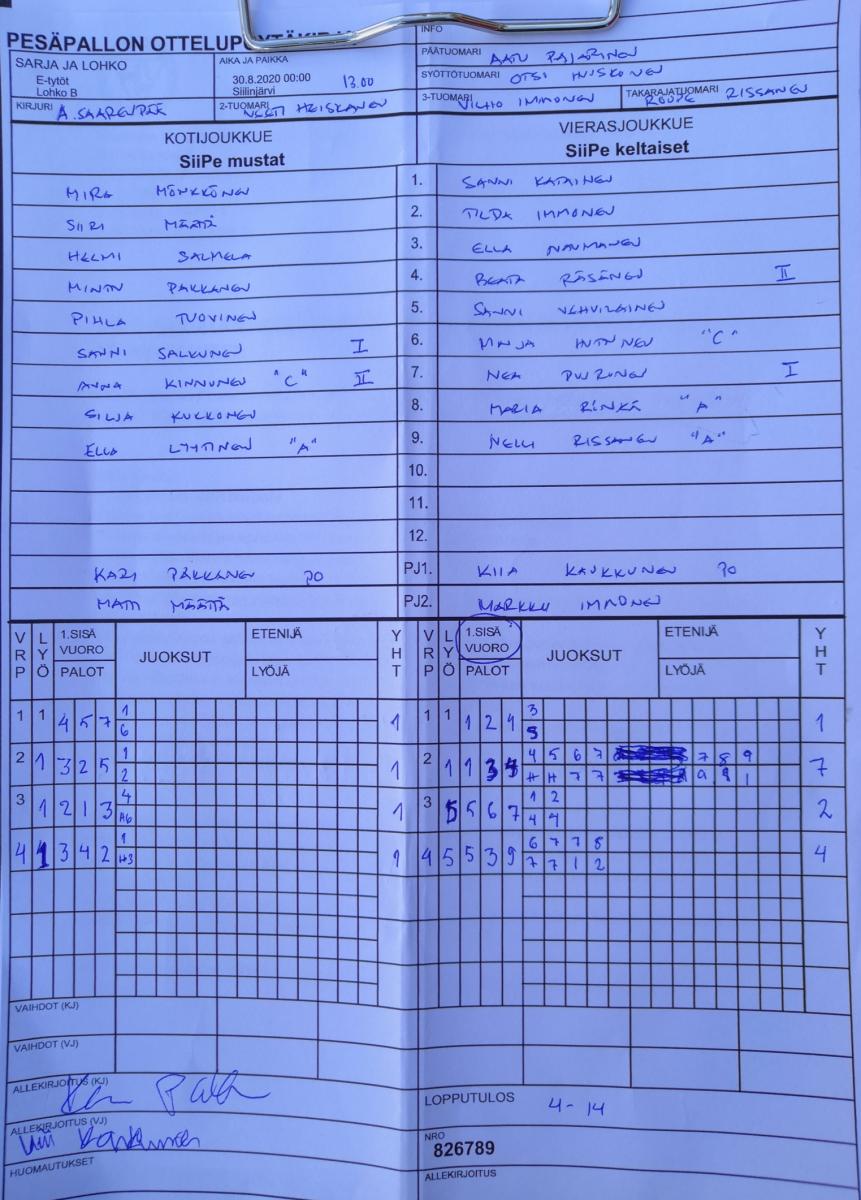 PESÄPALLON OTTELUP
INFO
SARJA JA LOHKO
E-tytöt
Lohko B
AIKA JA PAIKKA
30.8.2020 00:00 13.00
Siilinjärvi
PÄÄTUOMARI AATU PAJARINEN
SYÖTTÖTUOMARI OTSI HUSKONEN
KIRJURI A. SAARENPÄÄ
2-TUOMARI HEISKANEN
3-TUOMARI VILHO IMMONEN
TAKARAJATUOMARI ROOPE RISSANEN
KOTIJOUKKUE
SiiPe mustat
VIERASJOUKKUE
SiiPe keltaiset
MIRA MÖNKKÖNEN 1. SANNI KATAINEN
SIIRI MÄÄTTÄ 2. TILDA IMMONEN
HELMI SALMELA 3. ELLA NAUMANEN
MINTTU PAKKANEN 4. BEATA RÄSÄNEN II
PIHLA TUOVINEN 5. SANNI VEHVILÄINEN
SANNI SALKUNEN I 6. MINJA HUTTUNEN "C"
ANNA KINNUNEN "C" II 7. NEA PUURUNEN I
SILJA KUKKONEN 8. MARIA RÖNKÄ "A"
ELLA LYYTINEN "A" 9. NELLI RISSANEN "A"
10.
11.
12.
KARI PAKKANEN PO PJ1. KIIA KAUKKUNEN PO
MATTI MÄÄTTÄ PJ2. MARKKU IMMONEN
VRP LYÖ 1.SISÄ VUORO PALOT JUOKSUT ETENIJÄ LYÖJÄ YHT
VRP LYÖ 1.SISÄ VUORO PALOT JUOKSUT ETENIJÄ LYÖJÄ YHT
1 1 4 5 7 1 1
6
1 1 1 2 4 3 1
5
2 1 3 2 5 1 1
2
2 1 1 3 4 5 6 7 7 8 9 7
H H 7 7 9 9 1
3 1 2 1 3 4 1
A6
3 5 5 6 7 1 2 2
4 4
4 1 3 4 2 1 1
H3
4 5 5 3 9 6 7 7 8 4
7 7 1 2
VAIHDOT (KJ)
VAIHDOT (VJ)
ALLEKIRJOITUS (KJ)
ALLEKIRJOITUS (VJ)
HUOMAUTUKSET
LOPPUTULOS 4-14
NRO
826789
ALLEKIRJOITUS